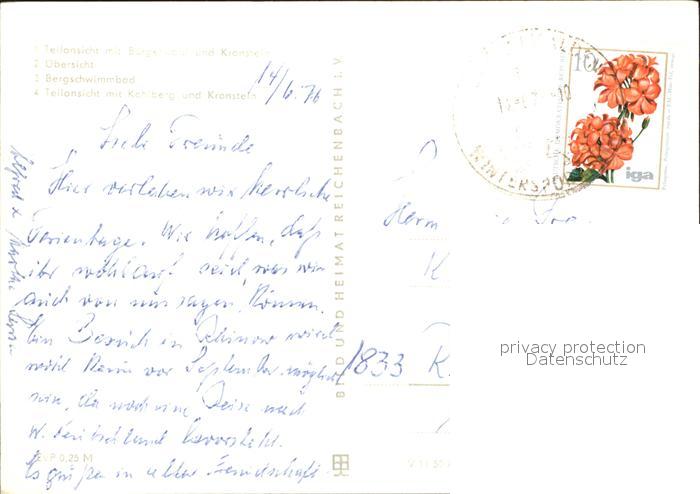 1 Teilansicht mit Bürgerwald und Kronstein
2 Übersicht
3 Bergschwimmbad
4 Teilansicht mit Kohlberg und Kronstein
14/6.76
Liebe Freunde
Hier verleben wir herrliche
Ferientage. Wir hoffen, daß
ihr wohlauf seid, was wir
auch von uns sagen können.
Ein Besuch in Rhinow wird
wohl kaum vor September möglich
sein, da noch eine Reise nach
W. Deutschland bevorsteht.
Es grüßen in alter Freundschaft
Alfred u.
EVP 0,25 M
BILD UND HEIMAT REICHENBACH I. V.
V 11 50
WINTERSPO
10
iga
Herrn
1833
privacy protection
Datenschutz